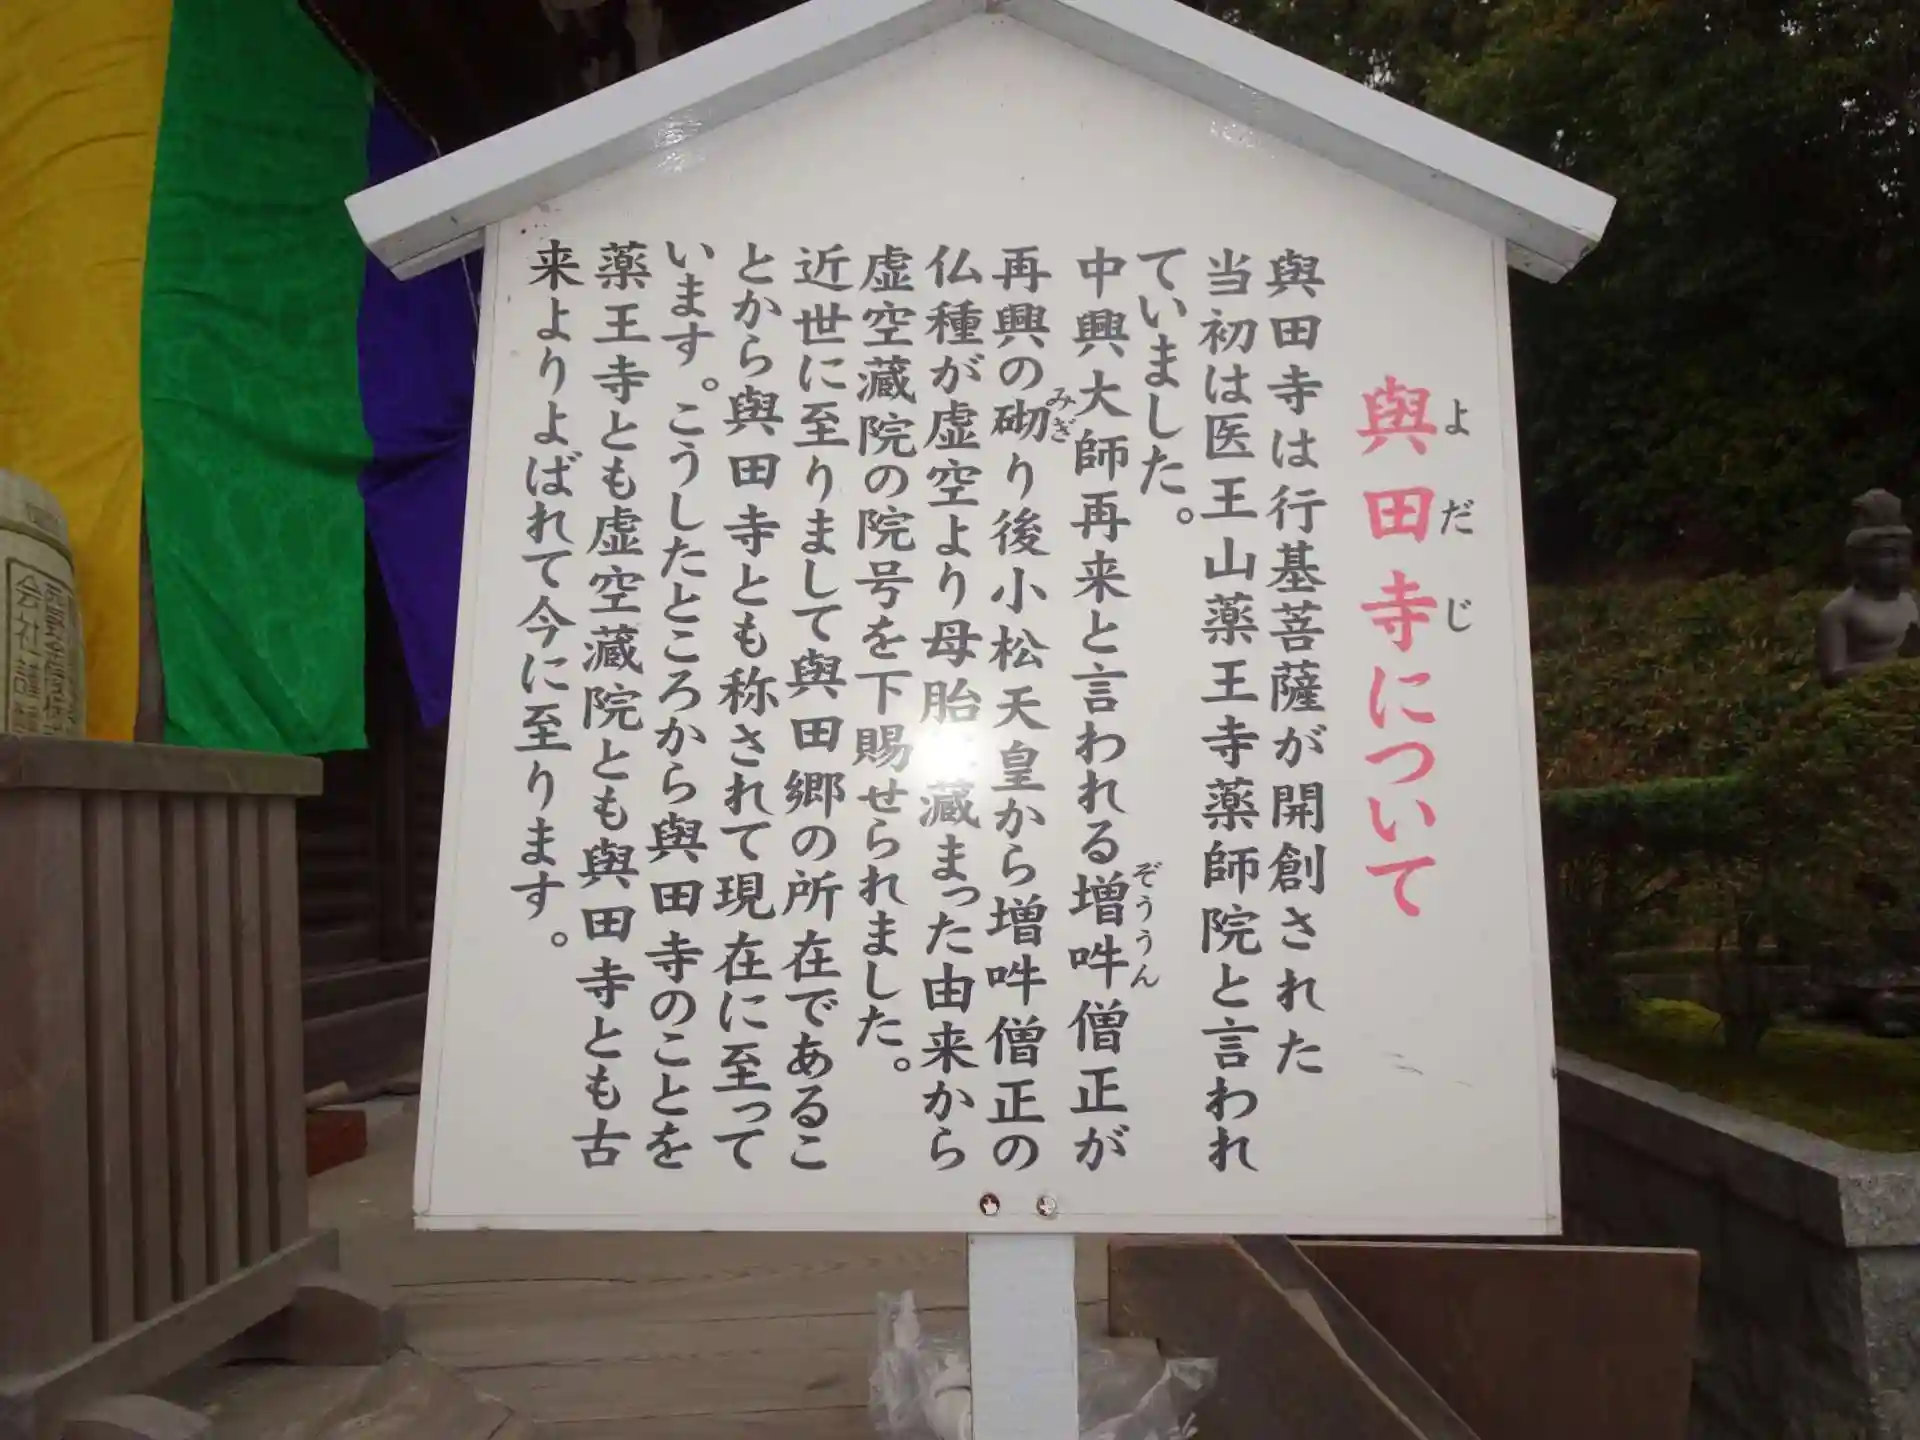 與田寺について
よだじ
與田寺は行基菩薩が開創された
当初は医王山薬王寺薬師院と言われ
ていました。
中興大師再来と言われる増吽僧正が
ぞううん
再興の砌り後小松天皇から増吽僧正の
みぎ
仏種が虚空より母胎 蔵まった由来から
虚空蔵院の院号を下賜せられました。
近世に至りまして與田郷の所在であるこ
とから與田寺とも称されて現在に至って
います。こうしたところから與田寺のことを
薬王寺とも虚空蔵院とも與田寺とも古
来よりよばれて今に至ります。
会社謹